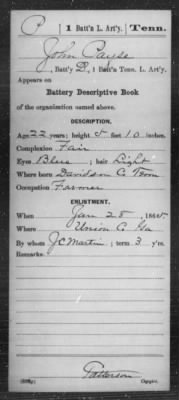 P | 1 Batt'n L. Art'y. | Tenn.
John Payse
, Batt'y D, 1 Batt'n Tenn. L. Art'y.
Appears on
Battery Descriptive Book
of the organization named above.
DESCRIPTION.
Age 22 years; height 5 feet 10 inches.
Complexion Fair
Eyes Blue ; hair Light
Where born Davidson C. Tenn
Occupation Farmer
ENLISTMENT.
When Jan 28 , 1865
Where Union C. Ga
By whom J C Martin ; term 3 y'rs.
Remarks:
Patterson
Copyist.